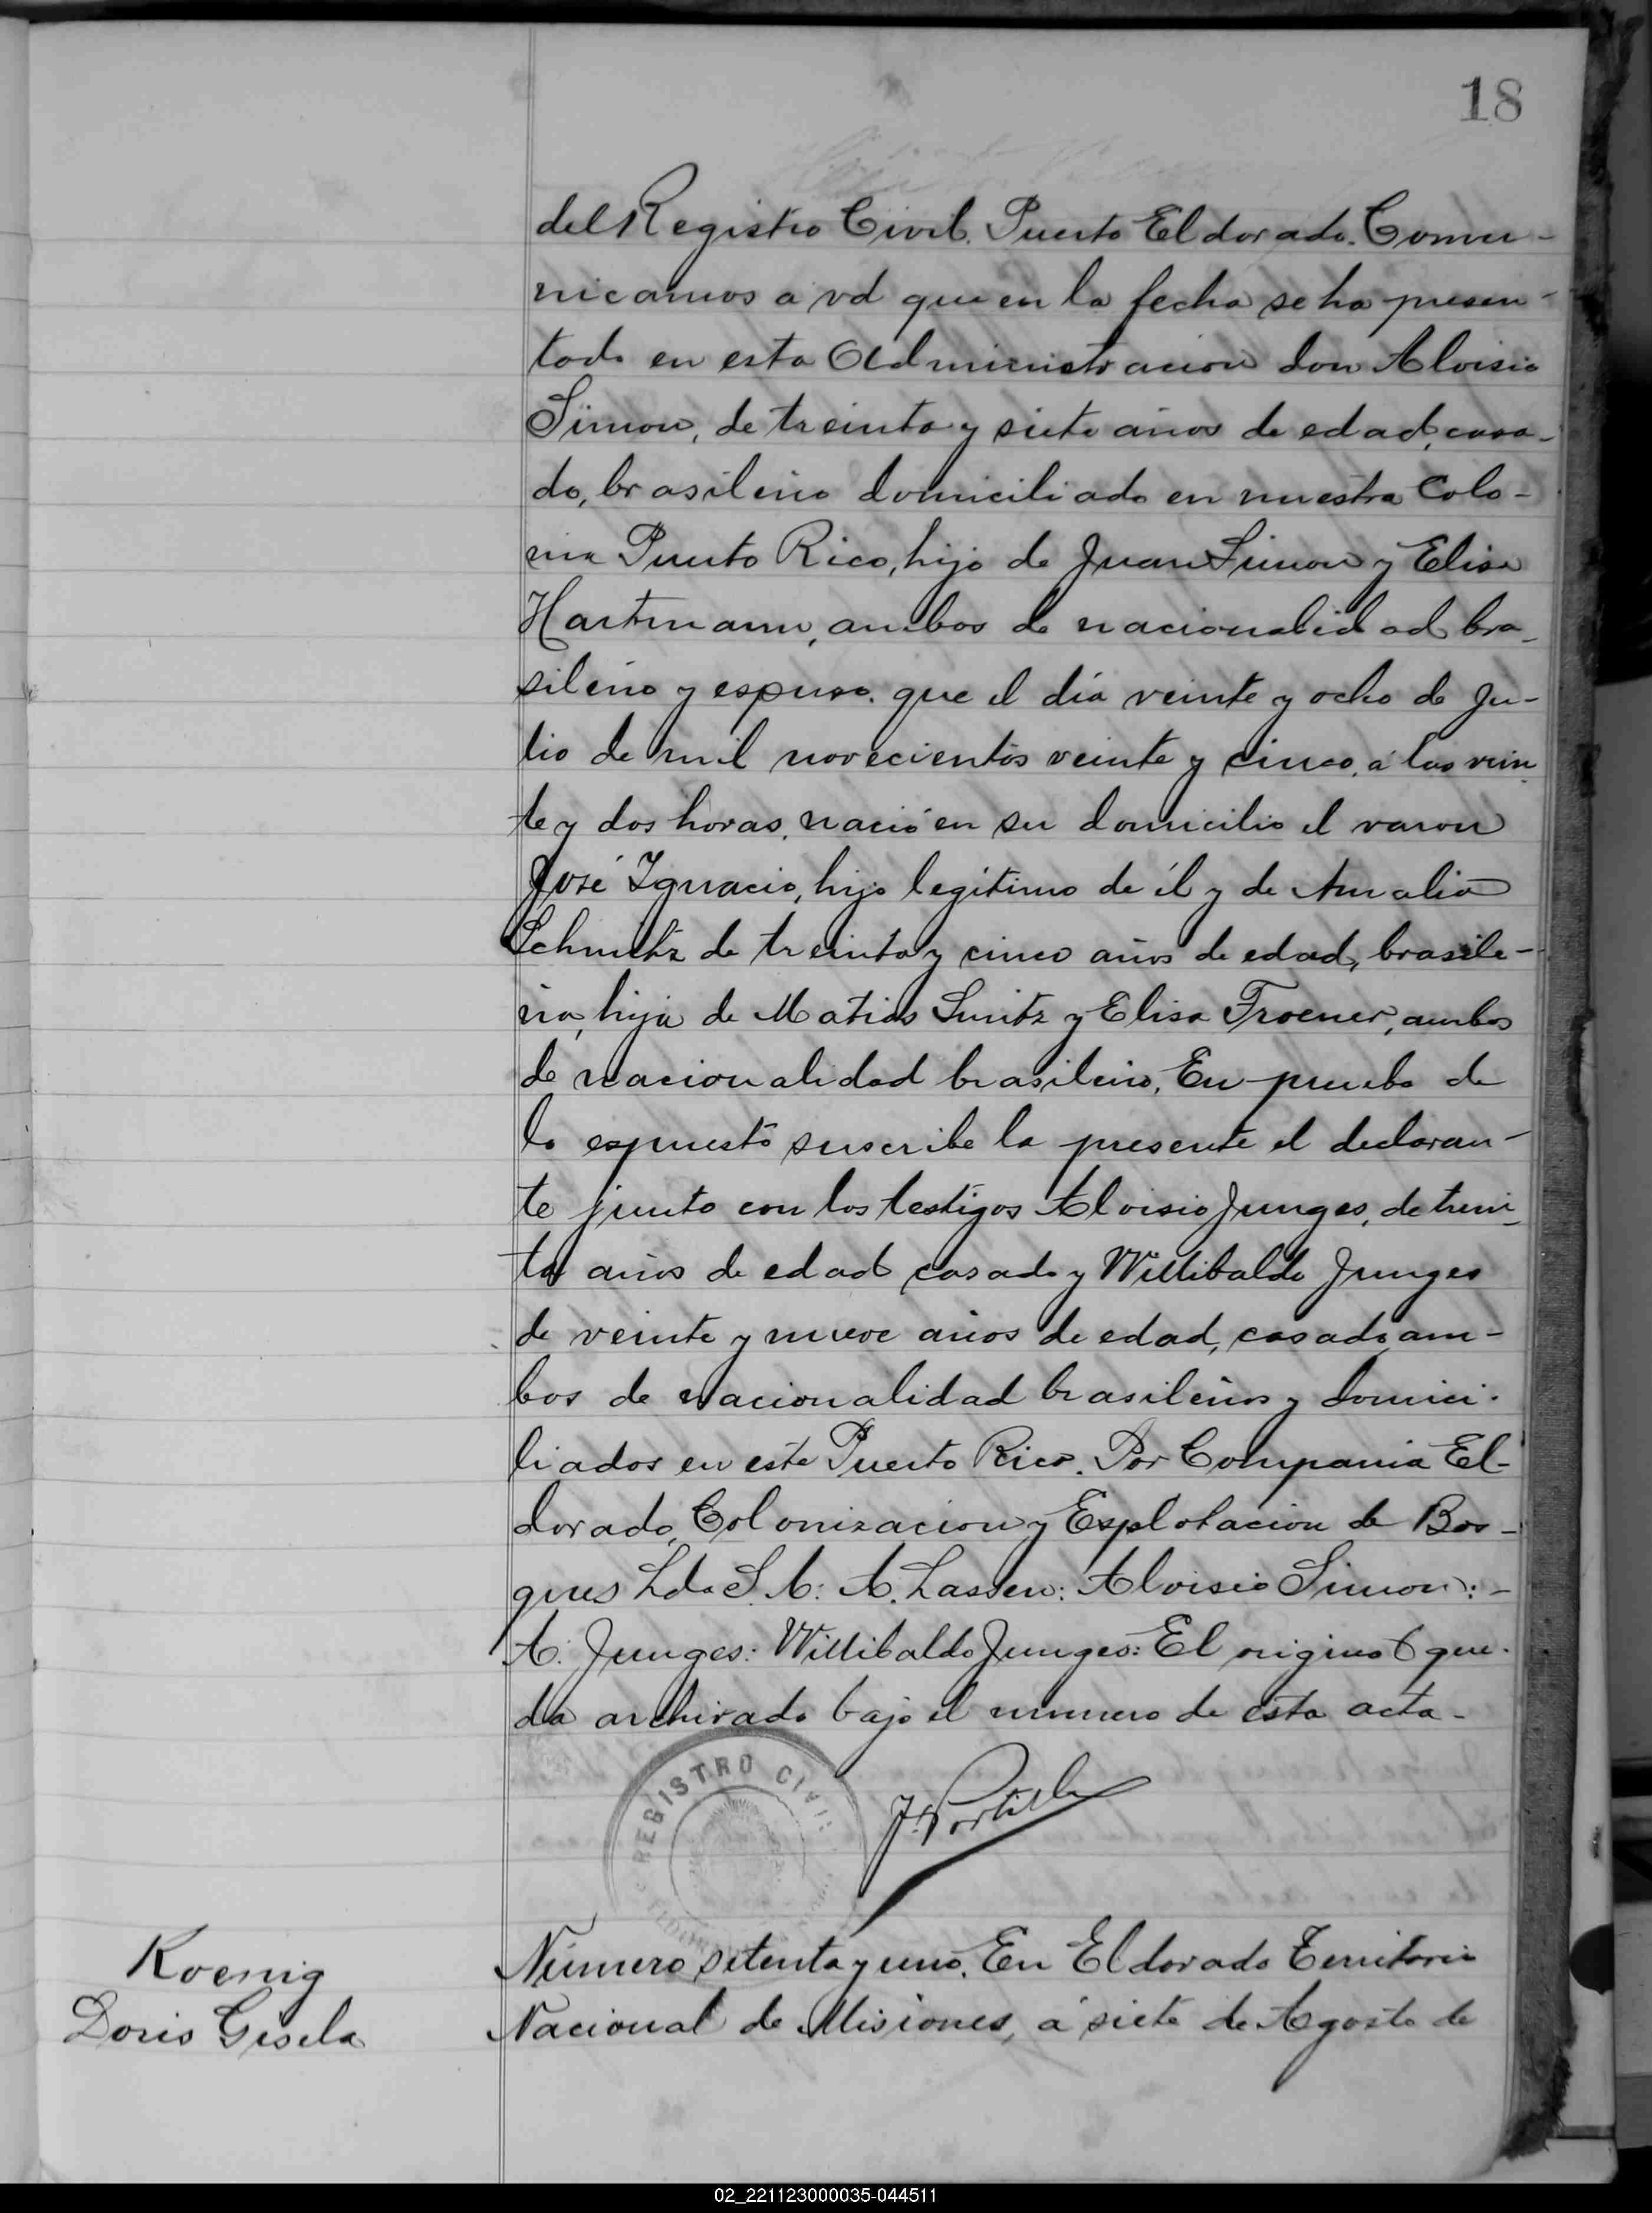 18
del Registro Civil. Puerto Eldorado. Comu-
nicamos a vd que en la fecha se ha presen-
tado en esta Administracion don Aloisio
Simon, de treinta y siete años de edad, casa-
do, brasileño domiciliado en nuestra Colo-
nia Puerto Rico, hijo de Juan Simon y Elisa
Hartmann, ambos de nacionalidad bra-
sileña y espuso. que el día veinte y ocho de Ju-
lio de mil novecientos veinte y cinco, a las vein
te y dos horas, nació en su domicilio el varon
José Ignacio, hijo legítimo de él y de Amalia
Schmitz de treinta y cinco años de edad, brasile-
ña, hija de Matias Smitz y Elisa Froener, ambos
de nacionalidad brasileña. En prueba de
lo espuesto suscribe la presente el declaran-
te junto con los testigos Aloisio Junges, de trein-
ta años de edad casado y Willibaldo Junges
de veinte y nueve años de edad, casado, am-
bos de nacionalidad brasileños y domici-
liados en este Puerto Rico. Por Compania El-
dorado, Colonizacion y Esplotacion de Bos-
ques Lda S. A: A. Lassen: Aloisio Simon: -
A. Junges: Willibaldo Junges: El original que-
da archivado bajo el numero de esta acta-
REGISTRO CIVIL
J. Portillo
Koenig
Doris Gisela
Número setenta y uno. En Eldorado Territorio
Nacional de Misiones, á siete de Agosto de
02_221123000035-044511